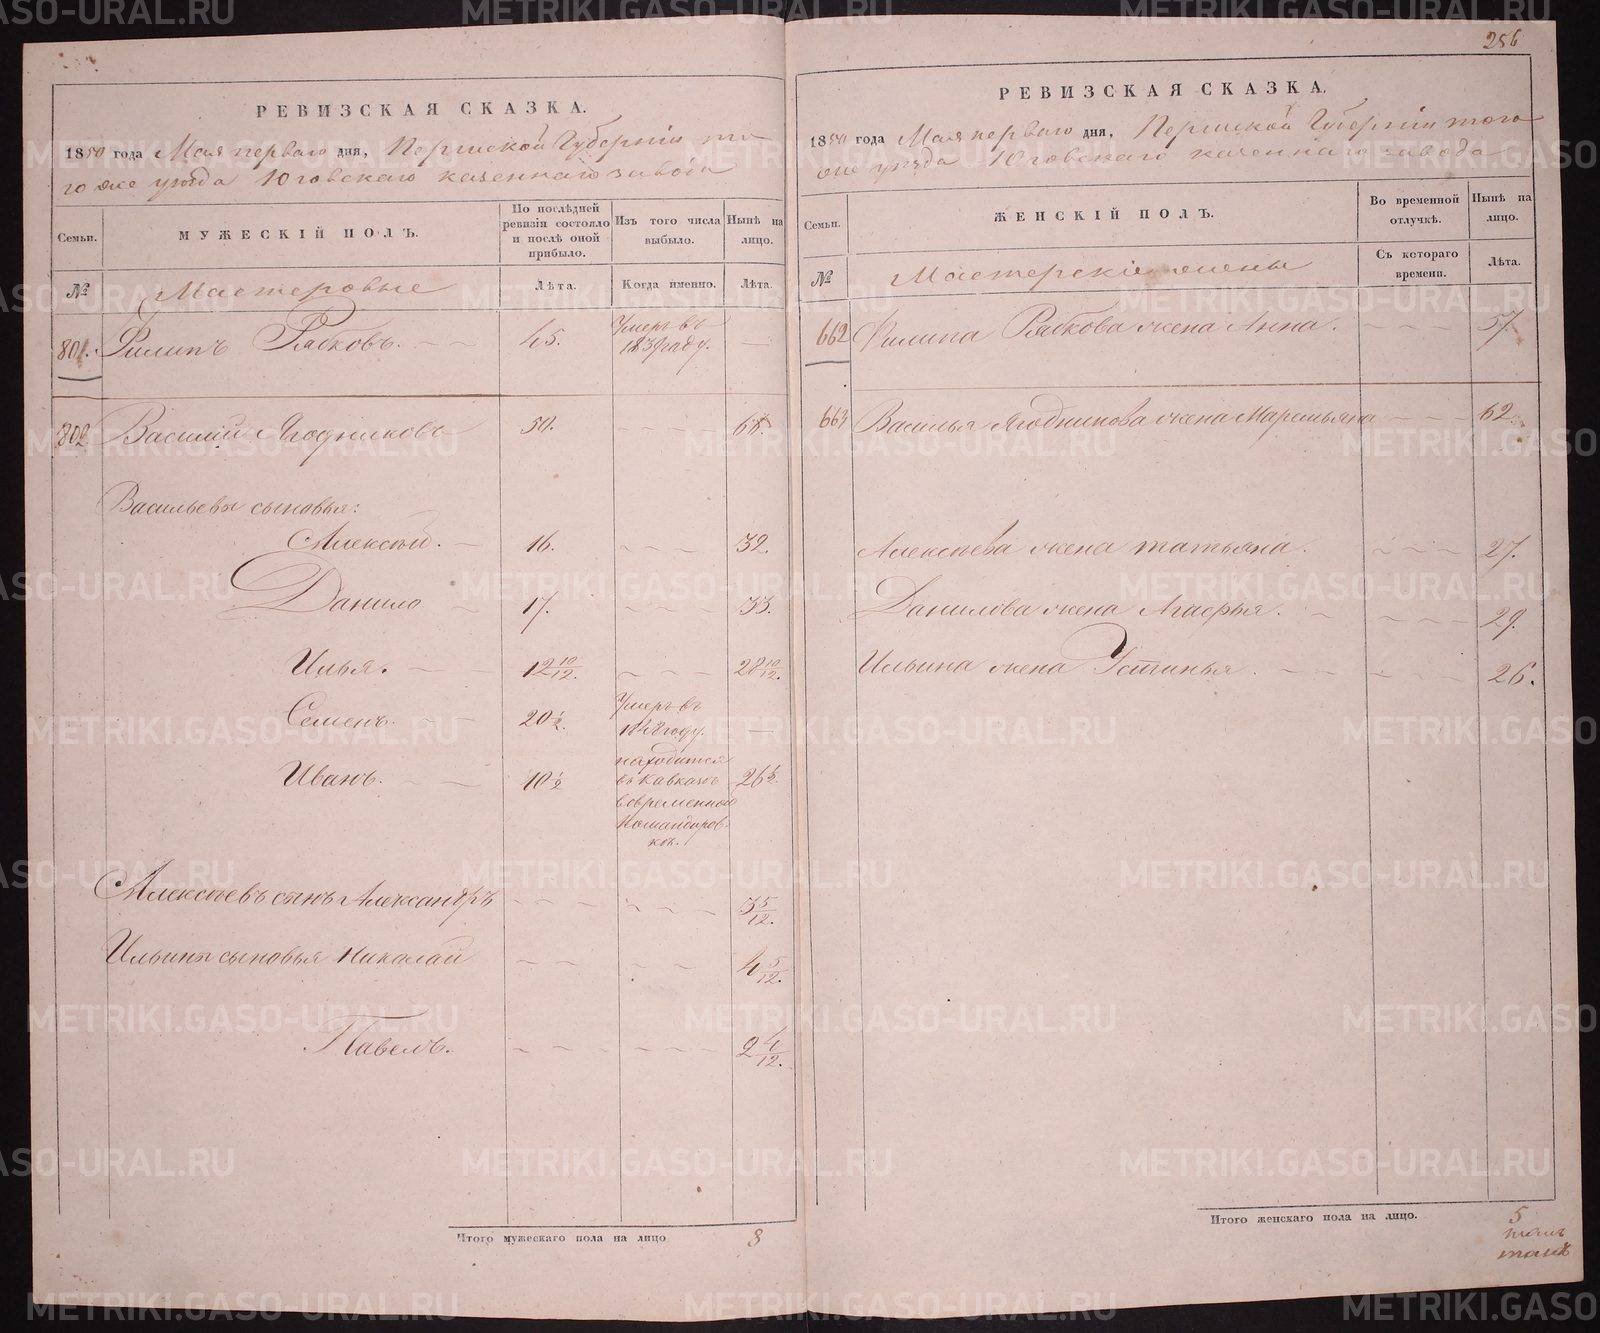 256
РЕВИЗСКАЯ СКАЗКА.
1850 года Мая перваго дня, Пермской Губерніи то
го же уѣзда Юговскаго казеннаго завода
Семьи.
МУЖЕСКІЙ ПОЛЪ.
По послѣдней ревизіи состояло и послѣ оной прибыло.
Изъ того числа выбыло.
Нынѣ на лицо.
№
Мастеровые
Лѣта.
Когда именно.
Лѣта.
801. Филипъ Рябковъ. 45. Умеръ въ 1839 году. —
802 Василій Ягодниковъ 50. 66.
Васильевы сыновья:
Алексѣй. 16. 32.
Данило 17. 33.
Илья. 12 10/12. 28 10/12.
Семенъ. 20 1/2. Умеръ въ 1848 году. —
Иванъ. 10 1/2 находится въ Кавказѣ во временной Командировкѣ. 26 1/2.
Алексѣевъ сынъ Александръ 3 5/12.
Ильины сыновья Николай 4 5/12.
Павелъ. 2 4/12.
Итого мужескаго пола на лицо 8
РЕВИЗСКАЯ СКАЗКА.
1850 года Мая перваго дня, Пермской Губерніи того
же уѣзда Юговскаго казеннаго завода
Семьи.
ЖЕНСКІЙ ПОЛЪ.
Во временной отлучкѣ.
Нынѣ на лицо.
№
Мастерскіе жены
Съ котораго времени.
Лѣта.
662 Филипа Рябкова жена Анна. 57.
663 Василья Ягодникова жена Маремьяна 62.
Алексѣева жена татьяна. 27.
Данилова жена Агафья. 29.
Ильина жена Устинья. 26.
Итого женскаго пола на лицо. 5
METRIKI.GASO-URAL.RU